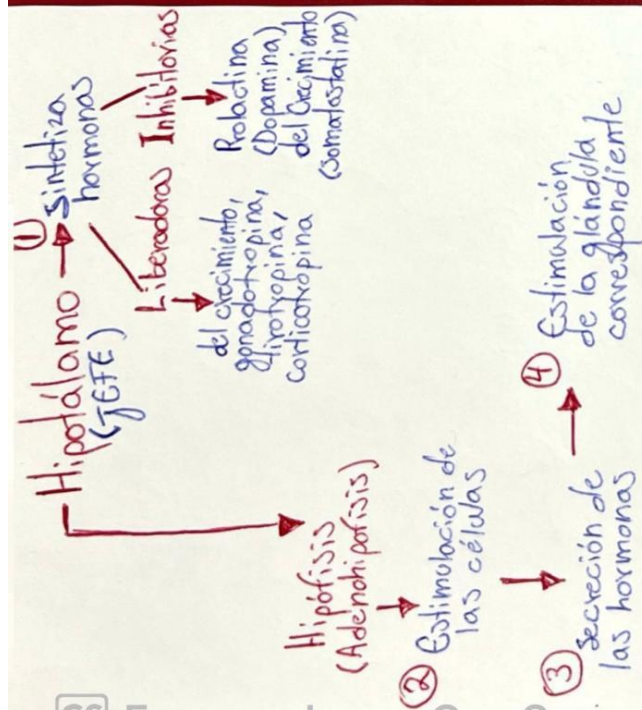 Hipotálamo
(JEFE)
①
Sintetiza
hormonas
Liberadoras
Inhibitorias
del crecimiento,
gonadotropina,
tirotropina,
corticotropina
Prolactina
(Dopamina)
del Crecimiento
(Somatostatina)
Hipófisis
(Adenohipofisis)
② Estimulación de
las células
③ Secreción de
las hormonas
④ Estimulación
de la glándula
correspondiente